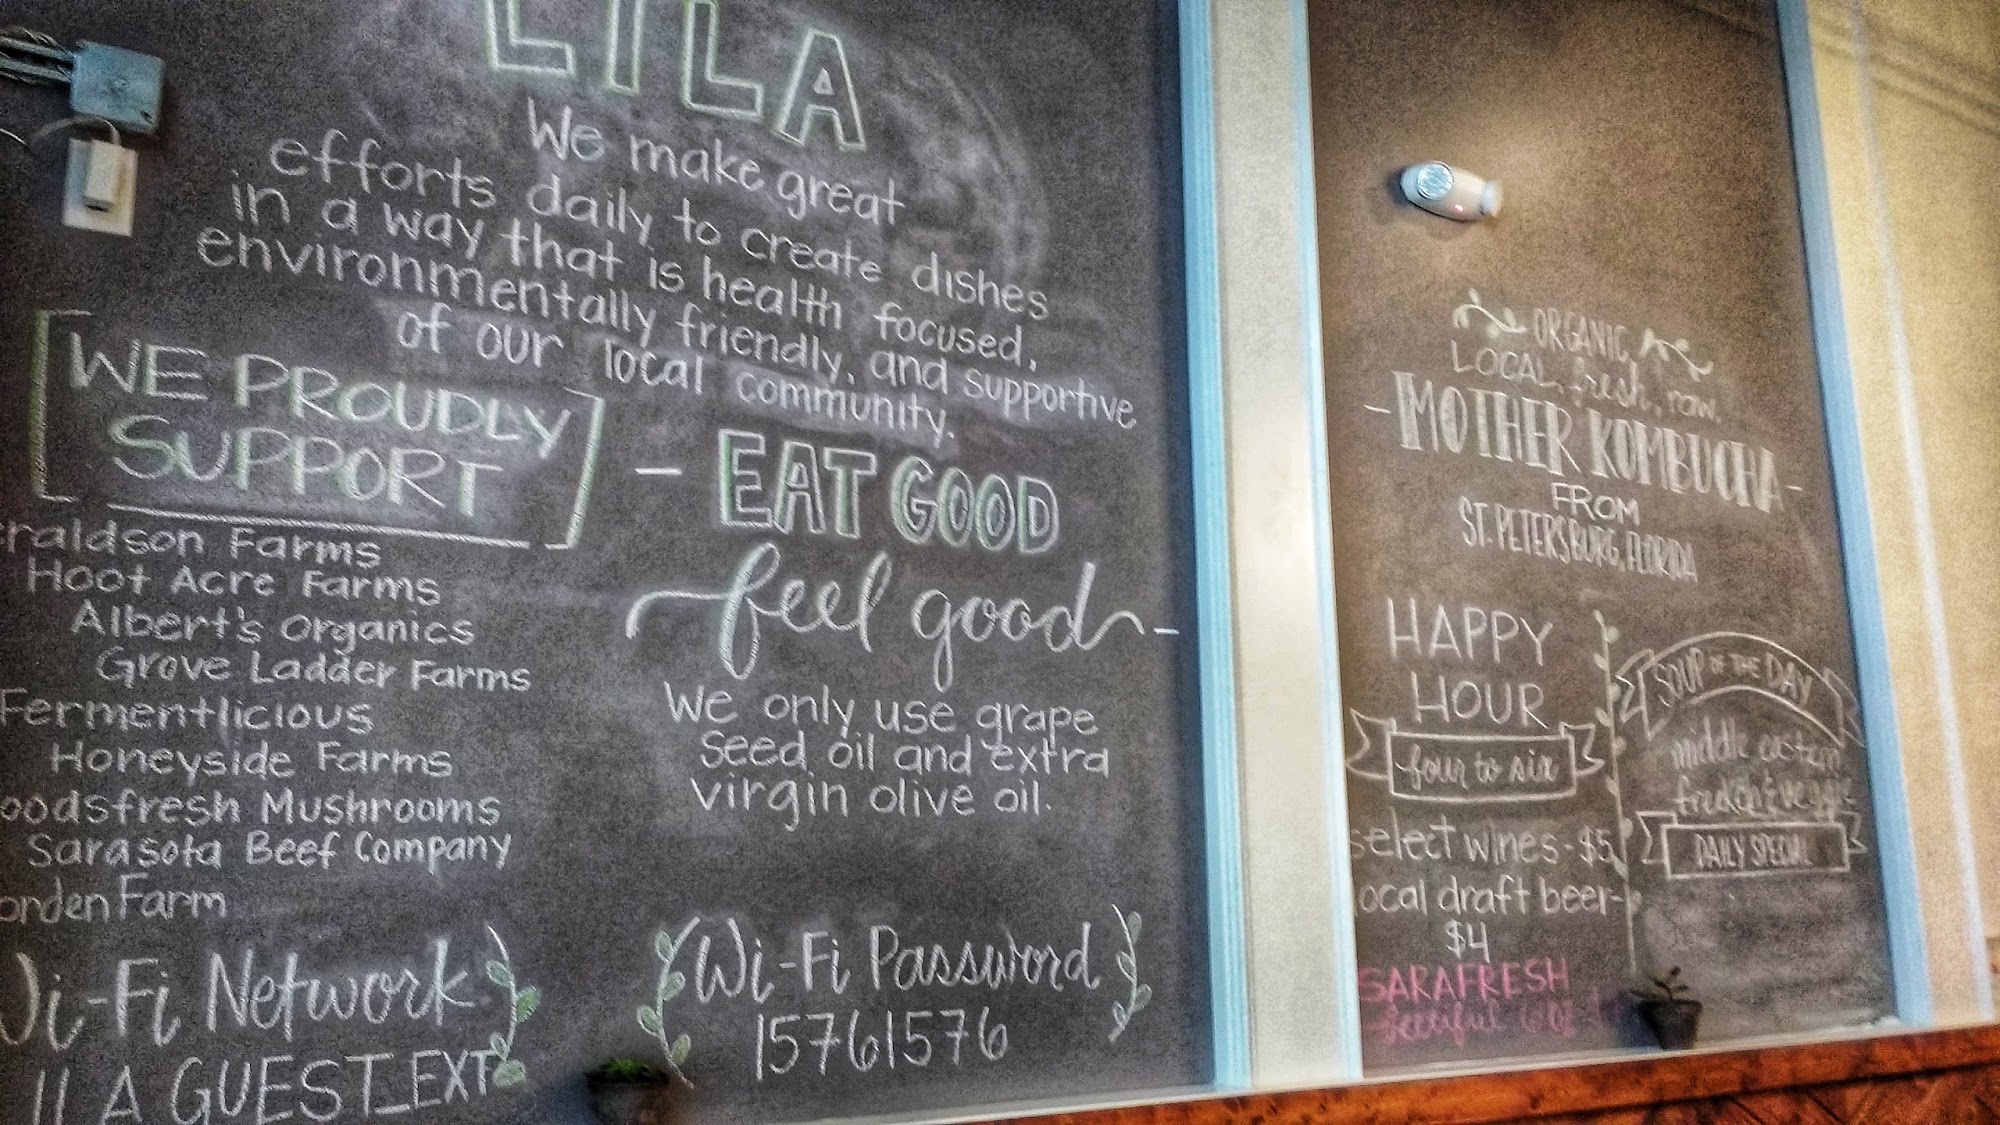 LILA
We make great
efforts daily to create dishes
in a way that is health focused,
environmentally friendly, and supportive
of our local community.
WE PROUDLY
SUPPORT
raldson Farms
Hoot Acre Farms
Albert's Organics
Grove Ladder Farms
Fermentlicious
Honeyside Farms
oodsfresh Mushrooms
Sarasota Beef Company
orden Farm
Wi-Fi Network
LILA GUEST_EXT
- EAT GOOD
feel good -
We only use grape
seed oil and extra
virgin olive oil.
Wi-Fi Password
15761576
ORGANIC,
LOCAL, fresh, raw.
- MOTHER KOMBUCHA -
FROM
ST. PETERSBURG, FLORIDA
HAPPY
HOUR
four to six
select wines - $5
local draft beer -
$4
SARAFRESH
SOUP OF THE DAY
middle eastern
& veggie
DAILY SPECIAL